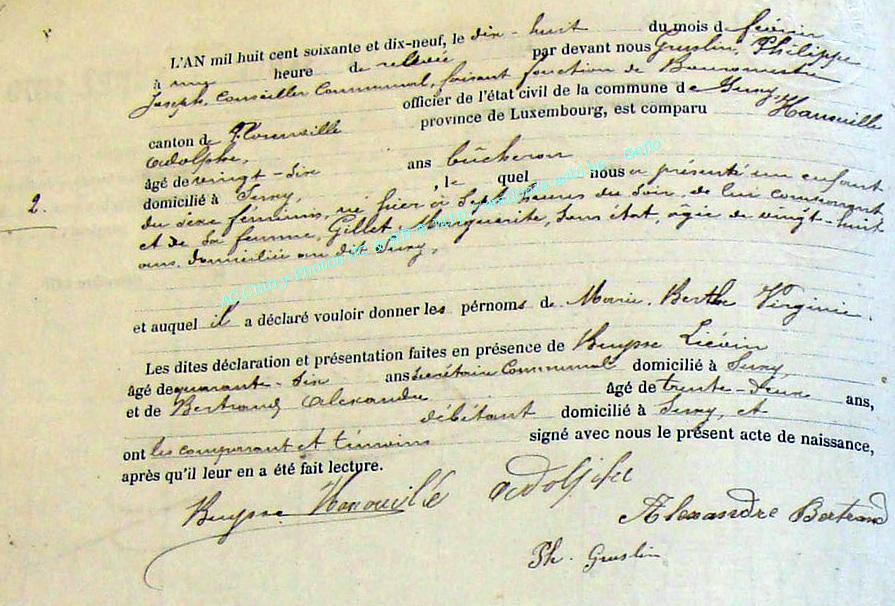 L'AN mil huit cent soixante et dix-neuf, le dix-huit du mois d février
à une heure de relevée par devant nous Gruslin, Philippe
Joseph, Conseiller Communal, faisant fonction de Bourgmestre
officier de l'état civil de la commune de Suxy,
canton de Florenville province de Luxembourg, est comparu Hanouille
Adolphe,
âgé de vingt-six ans bûcheron
domicilié à Suxy, , le quel nous a présenté un enfant
2. du sexe féminin, né hier à sept heures du soir, de lui comparant
et de sa femme, Gillet, Marguerite, sans état, âgée de vingt-huit
ans, domiciliée au dit Suxy,
et auquel il a déclaré vouloir donner les pérnoms de Marie, Berthe Virginie.
Les dites déclaration et présentation faites en présence de Buysse Liévin
âgé de quarante-six ans secrétaire Communal domicilié à Suxy
et de Bertrand Alexandre âgé de trente-deux ans,
débitant domicilié à Suxy, et
ont les comparant et témoins signé avec nous le présent acte de naissance,
après qu'il leur en a été fait lecture.
Buysse Hanouille Adolphe
Alexandre Bertrand
Ph. Gruslin